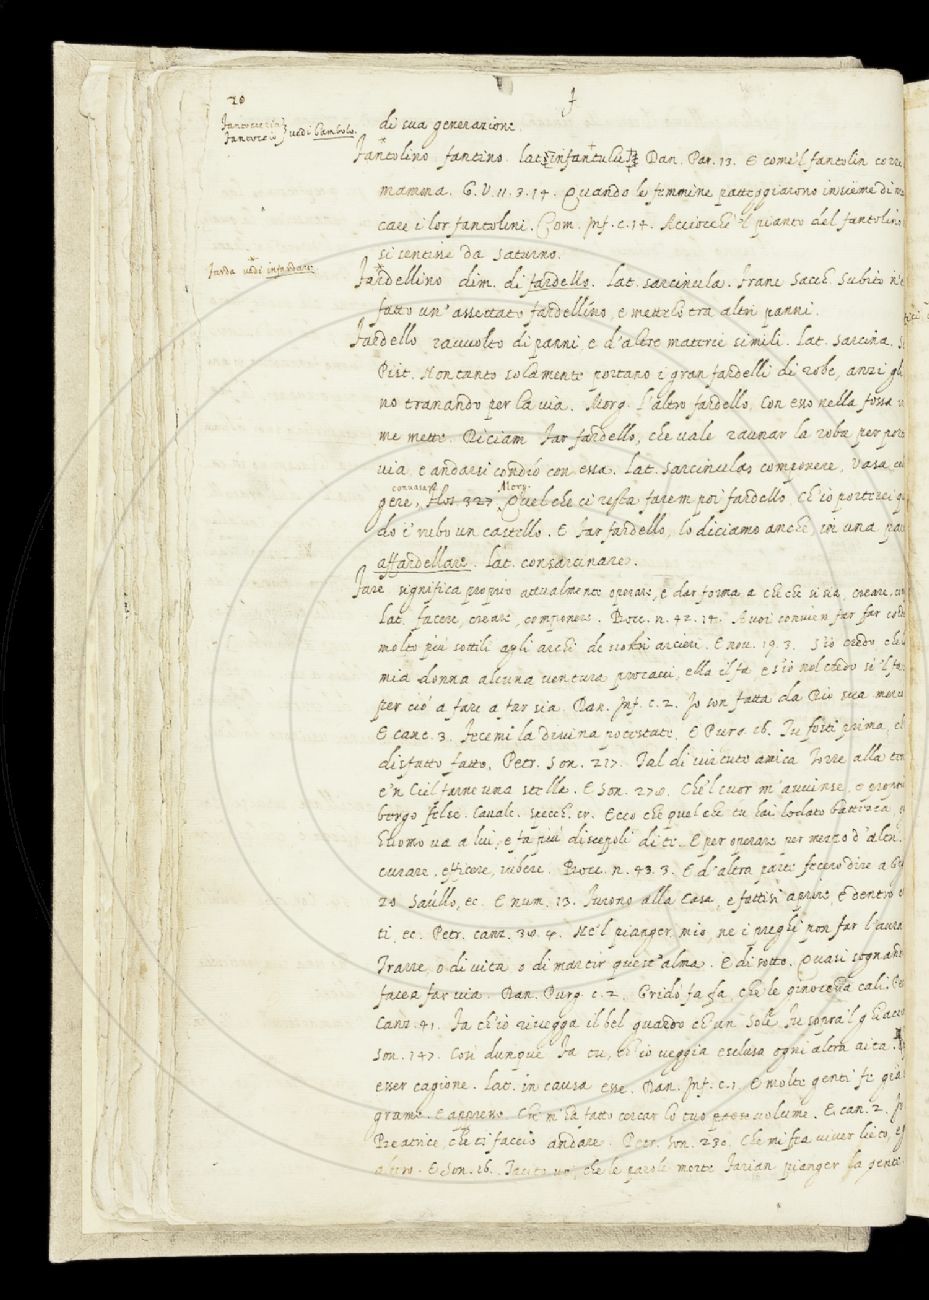 20
F
Fantoccieria
Fantoccio } vedi Bambolo.
di sua generazione.
Fantolino fantino. lat. infantulus Dan. Par. 23. E come'l fantolin
mamma. G. V. 11. 3. 14. Quando le femmine patteggiavano insieme di
care i lor fantolini. Com. Inf. c. 14. Acciocche 'l pianto del fantolino
si sentisse da Saturno.
Farda vedi infardare
Fardellino dim. di fardello. Lat. sarcinula. Franc Sacch. Subito n'
fatto un' assettato fardellino, e mettelo tra altri panni.
Fardello ravvolto di panni e d'altre materie simili. Lat. sarcina.
Pist. Non tanto solamente portano i gran fardelli di robe, anzi gli
no tranando per la via. Morg. L'altro fardello, con esso nella fossa
me mette. Diciam Far fardello, che vale raunar la roba per por
via e andarsi con essa. Lat. sarcinulas componere, Vasa
convasare Morg.
gere, Quel che ci resta farem poi fardello Ch'io porterei
do i' rubo un castello. E far fardello, lo diciamo anche in una
affardellare. Lat. consarcinare.
Fare significa proprio attualmente operare, e dar forma a che che si sia, creare,
Lat. facere, creare, componere. Bocc. n. 42. 14. A voi convien far far
molto più sottili agli archi de vostri arcieri. E nov. 19. 3. S'io credo, che
mia donna alcuna ventura procacci, ella il fa e s'io nol credo si 'l fa
per ciò a fare a far sia. Dan. Inf. c. 2. Io son fatta da Dio sua mercè
E canc. 3. Fecemi la divina potestate. E Purg. 16. Tu fosti prima,
disfatto fatto. Petr. Son. 217. Tal di virtute amica Torre alla
e'n Ciel farne una stella. E Son. Che'l cuor m'avvinse, e
borgo felse. Cavalc. specch. cr. Ecco che quel che tu hai lodato battezza
Huomo va a lui, e fa più discepoli di te. E per operare per mezzo d'altri.
curare, efficere, iubere. Bocc. n. 43. 3. E d'altra parte fecero dire a
20 Saullo, ec. E num. 13. Furono alla casa, e fattisi aprire, e dentro
ti, ec. Petr. canz. Ne'l pianger mio, ne i preghi pon far l'aura
Trarre, o di vita o di martir quest'alma. E di sotto. Quasi sognando
facea far via. Dan. Purg. c. 2. Gridò fa fa che le ginocchia cali.
Canz. 41. Fa ch'io rivegga il bel guardo ch'un Sole Fu sopra'l ghiaccio
Son. 147. Così dunque fa tu, ch'io veggia esclusa ogni altra aita.
esser cagione. Lat. in causa esse. Dan. Inf. c. 1. E molte genti fe già
grame. E appresso. Che m'ha fatto cercar lo tuo volume. E. can. 2.
Beatrice che ti faccio andare. Petr. Son. 230. Che mi fea viver lieto,
altro. E Son. 16. Tacito vo', che le parole morte Farian pianger la gente